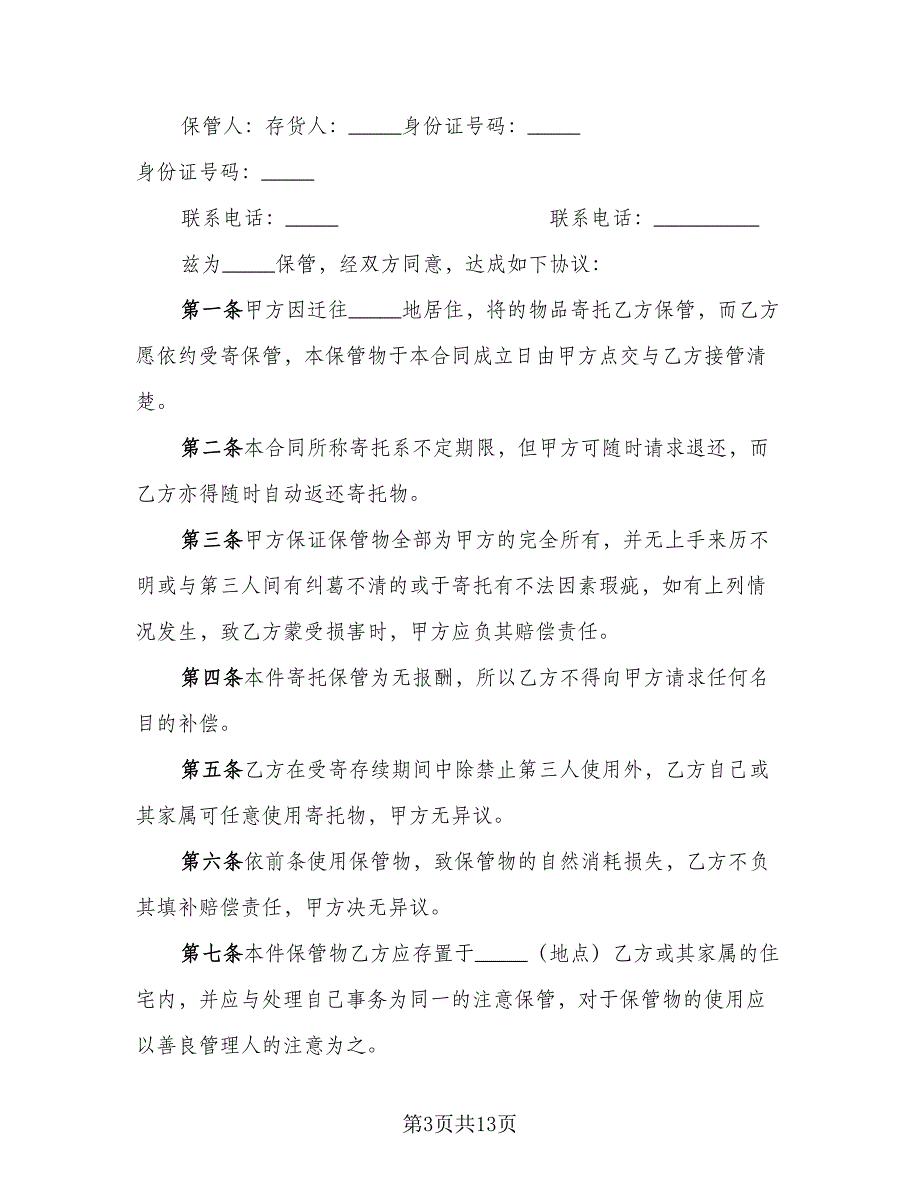 保管人：存货人：_____身份证号码：_____
身份证号码：_____
联系电话：_____ 联系电话：__________
兹为_____保管，经双方同意，达成如下协议：
第一条甲方因迁往_____地居住，将的物品寄托乙方保管，而乙方
愿依约受寄保管，本保管物于本合同成立日由甲方点交与乙方接管清
楚。
第二条本合同所称寄托系不定期限，但甲方可随时请求退还，而
乙方亦得随时自动返还寄托物。
第三条甲方保证保管物全部为甲方的完全所有，并无上手来历不
明或与第三人间有纠葛不清的或于寄托有不法因素瑕疵，如有上列情
况发生，致乙方蒙受损害时，甲方应负其赔偿责任。
第四条本件寄托保管为无报酬，所以乙方不得向甲方请求任何名
目的补偿。
第五条乙方在受寄存续期间中除禁止第三人使用外，乙方自己或
其家属可任意使用寄托物，甲方无异议。
第六条依前条使用保管物，致保管物的自然消耗损失，乙方不负
其填补赔偿责任，甲方决无异议。
第七条本件保管物乙方应存置于_____（地点）乙方或其家属的住
宅内，并应与处理自己事务为同一的注意保管，对于保管物的使用应
以善良管理人的注意为之。
第3页共13页